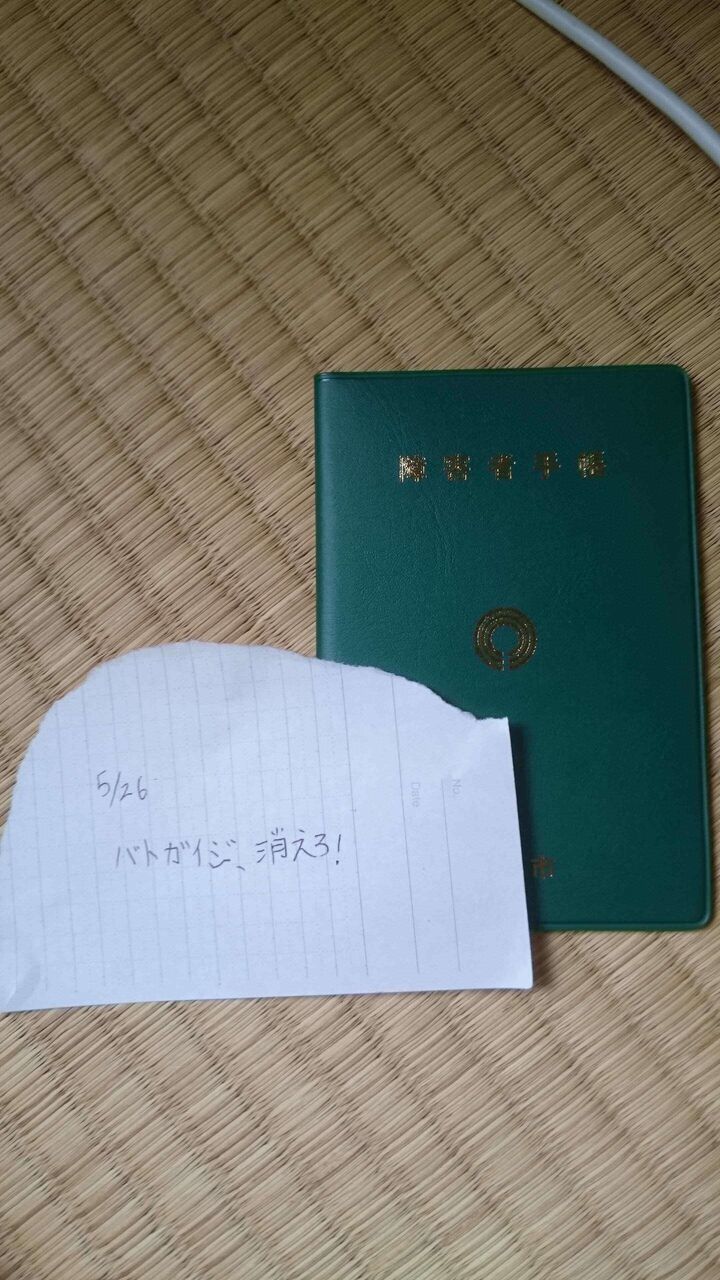 障害者手帳
市
No.
Date
5/26
バトガイジ、消えろ!